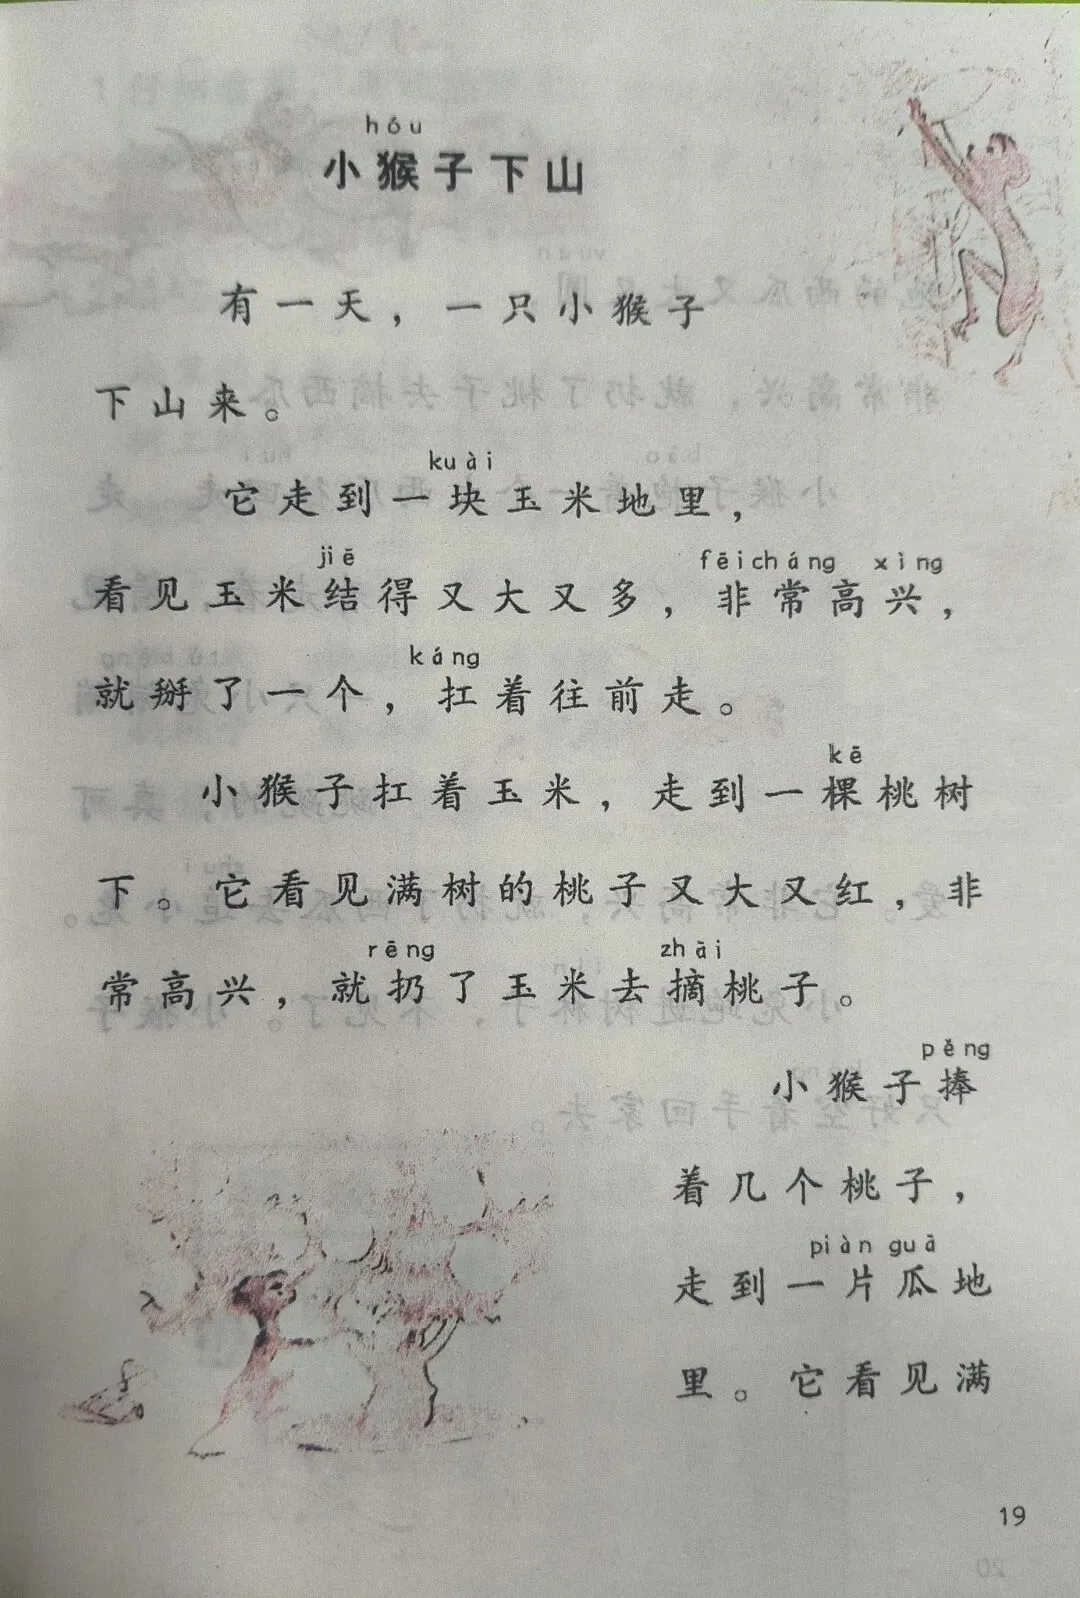 hóu
小猴子下山
有一天，一只小猴子
下山来。
kuài
它走到一块玉米地里，
jiē fēicháng xìng
看见玉米结得又大又多，非常高兴，
káng
就掰了一个，扛着往前走。
kē
小猴子扛着玉米，走到一棵桃树
下。它看见满树的桃子又大又红，非
rēng zhāi
常高兴，就扔了玉米去摘桃子。
pěng
小猴子捧
着几个桃子，
piàn guā
走到一片瓜地
里。它看见满
19